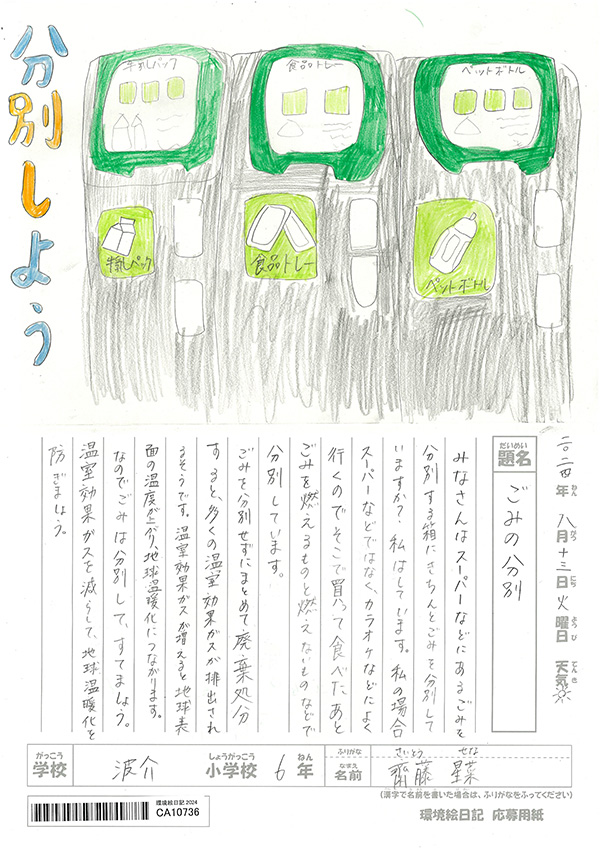 分別しよう
牛乳パック
食品トレー
ペットボトル
牛乳パック
食品トレー
ペットボトル
二〇二四年 八月十三日 火曜日 天気
ねん がつ にち ようび てんき
だいめい
題名
ごみの分別
みなさんはスーパーなどにあるごみを
分別する箱にきちんとごみを分別して
いますか?私はしています。私の場合
スーパーなどではなく、カラオケなどによく
行くのでそこで買って食べたあと
ごみを燃えるものと燃えないものなどで
分別しています。
ごみを分別せずにまとめて廃棄処分
すると、多くの温室効果ガスが排出され
るそうです。温室効果ガスが増えると地球表
面の温度が上がり地球温暖化につながります。
なのでごみは分別して、すてましょう。
温室効果ガスを減らして、地球温暖化を
防ぎましょう。
がっこう しょうがっこう ねん ふりがな さいとう せな
学校 波介 小学校 6年
なまえ
名前 齋藤 星菜
(漢字で名前を書いた場合は、ふりがなをふってください)
環境絵日記 2024
CA10736
環境絵日記 応募用紙